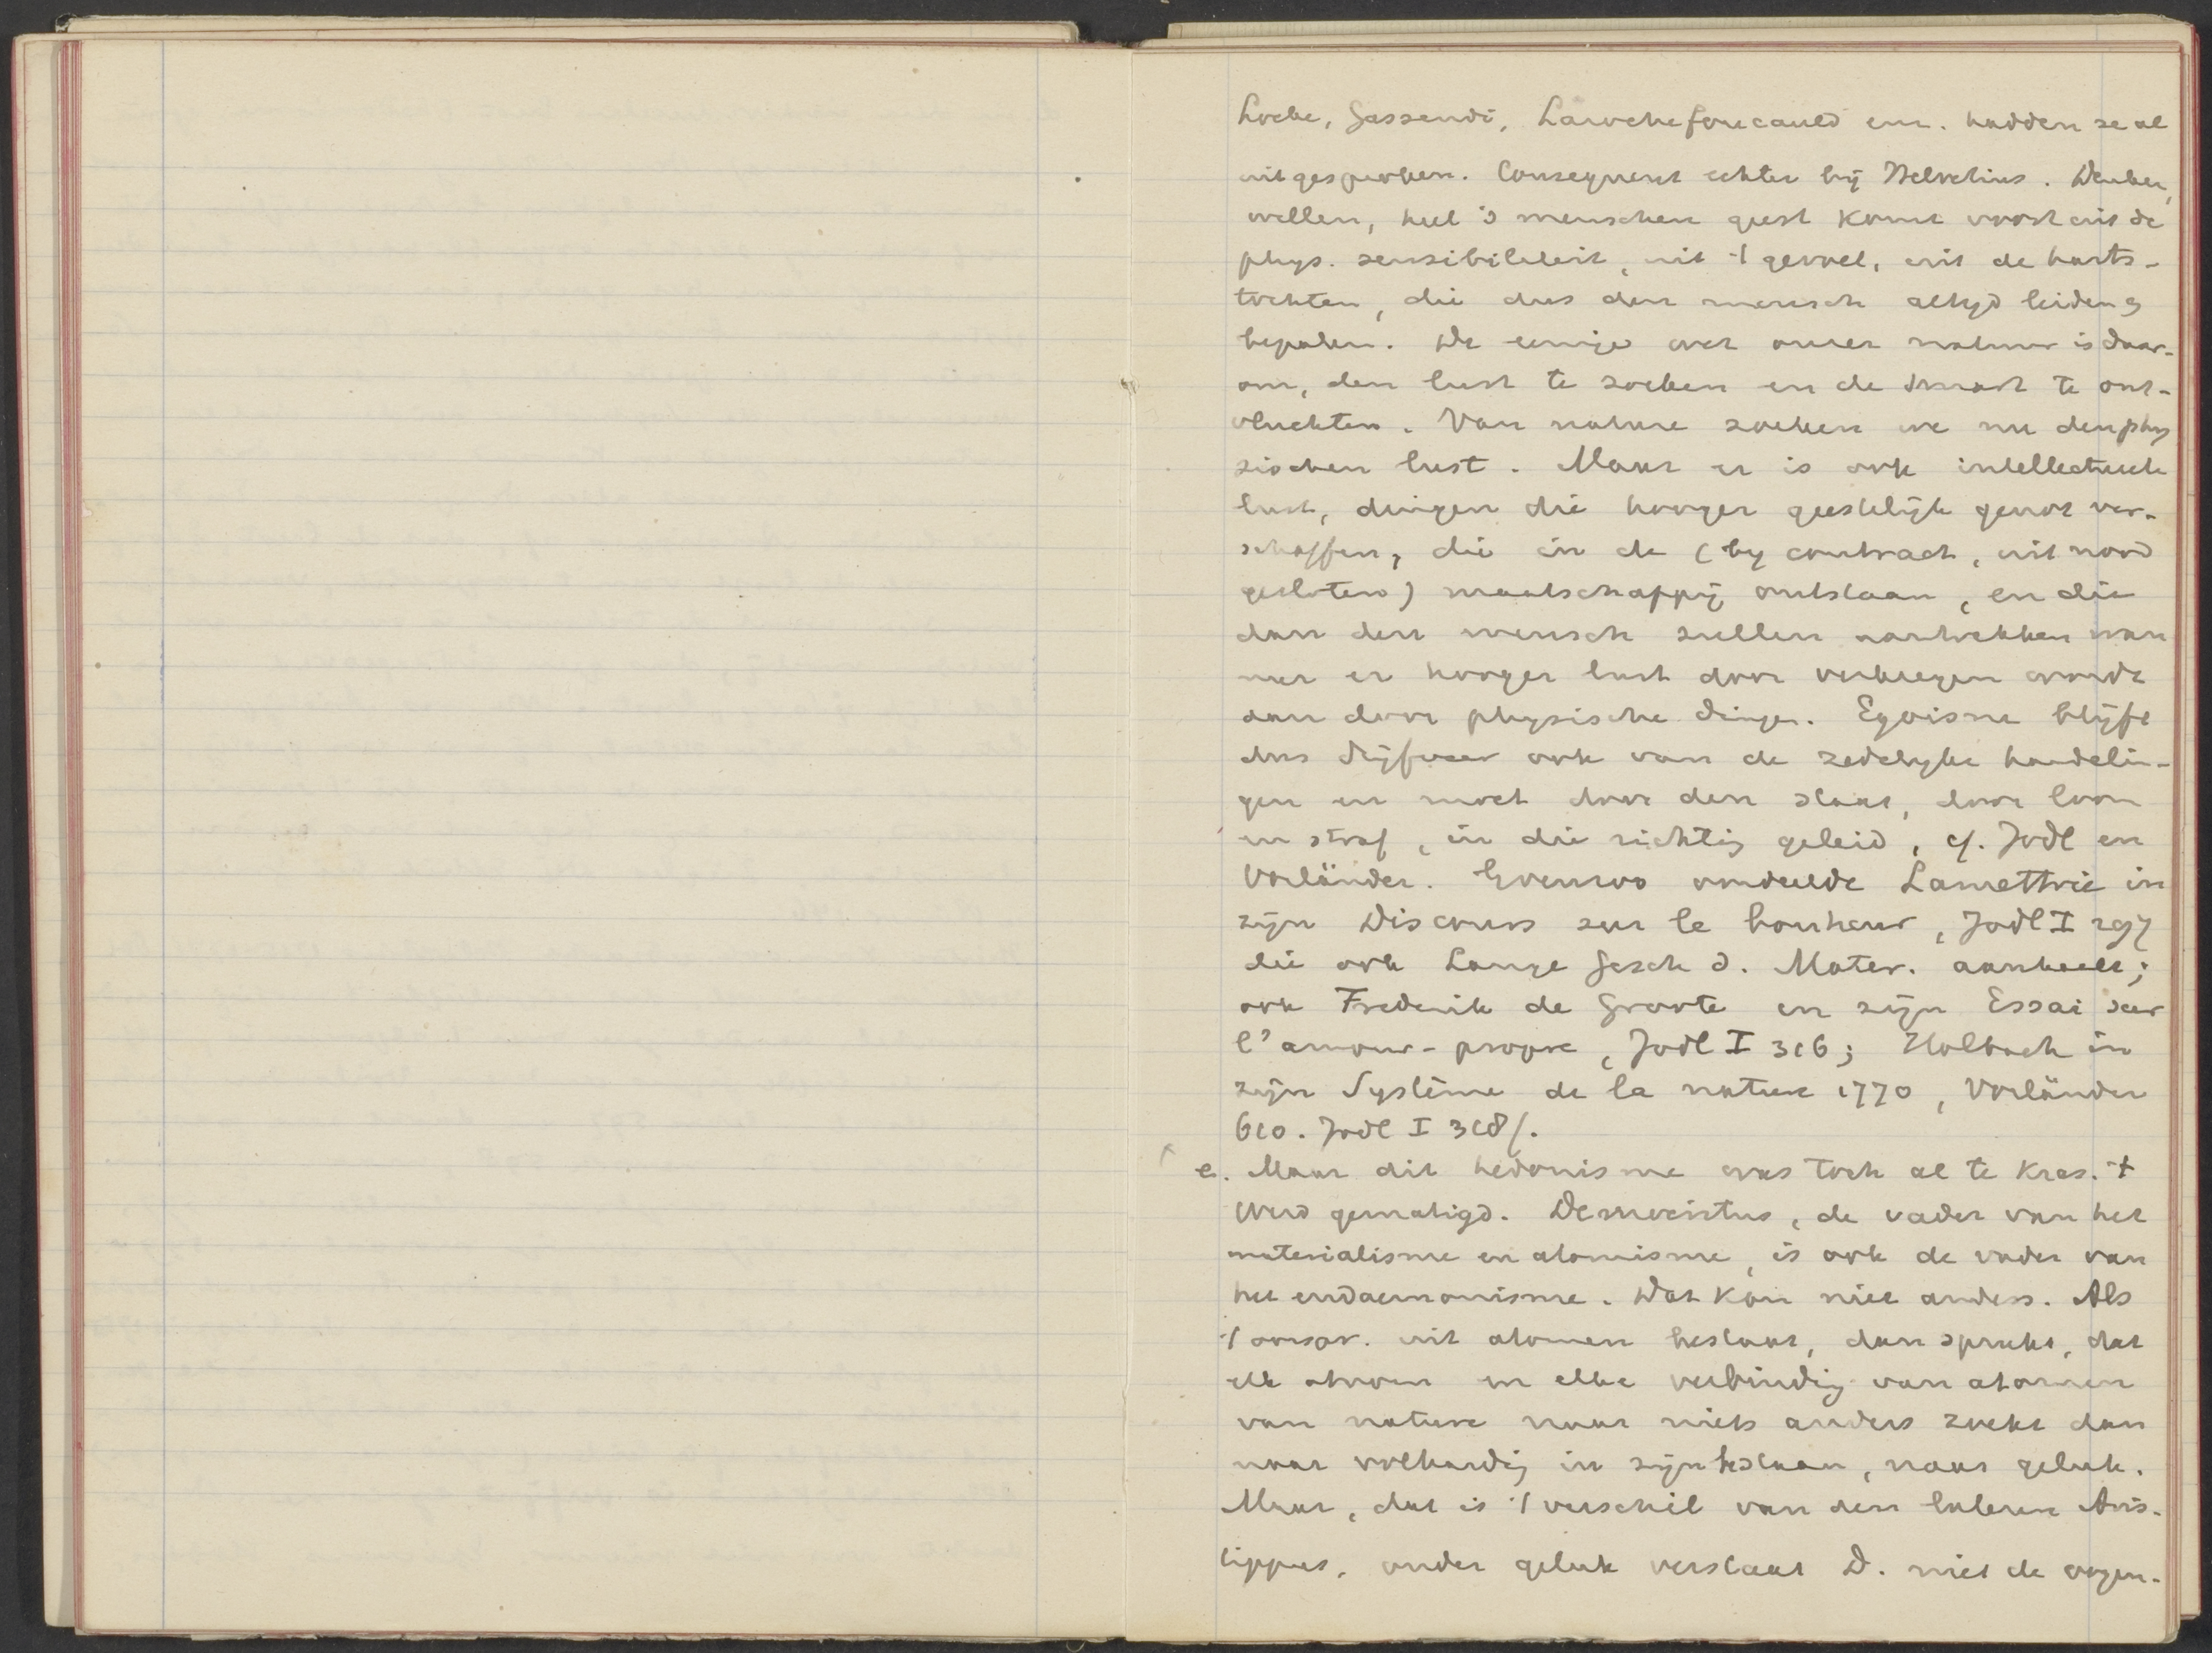 Locke, Gassendi, Larochefoucauld enz. hadden ze al
uitgesproken. Consequent echter bij Helvetius. Denken,
willen, heel 's menschen geest komt voort uit de
phys. sensibiliteit, uit 't gevoel, uit de harts-
tochten, die dus den mensch altyd leiden &
bepalen. De eenige wet onzer natuur is daar-
om, den lust te zoeken en de smart te ont-
vluchten. Van nature zoeken we nu den phy
sischen lust. Maar er is ook intellectueele
lust, dingen die hooger geestelijk genot ver-
schaffen, die in de (by contract, uit nood
gesloten) maatschappij ontstaan, en die
dan den mensch zullen aantrekken wan
neer er hooger lust door verkregen wordt
dan door physische dingen. Egoisme blijft
dus drijfveer ook van de zedelyke handelin-
gen en moet door den staat, door loon
en straf, in die richting geleid, cf. Jodl en
Vorländer. Evenzoo oordeelde Lamettrie in
zijn Discours sur le bonheur, Jodl I 297
die ook Lange Gesch d. Mater. aanhaalt;
ook Frederik de Groote in zijn Essai sur
l'amour-propre, Jodl I 316; Holbach in
zijn Système de la nature 1770, Vorländer
610. Jodl I 318/.
e. Maar dit hedonisme was toch al te kras. 't
Werd gematigd. Democritus, de vader van het
materialisme en atomisme, is ook de vader van
het eudaemonisme. Dat kon niet anders. Als
't oorspr. uit atomen bestaat, dan spreekt, dat
elk atoom en elke verbinding van atomen
van nature naar niets anders zoekt dan
naar volharding in zijn bestaan, naar geluk.
Maar, dat is 't verschil van den lateren Aris-
tippus, onder geluk verstaat D. niet de oogen-